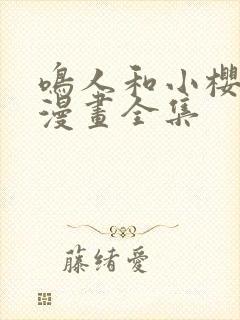 鳴人和小櫻
漫畫全集
藤緒愛